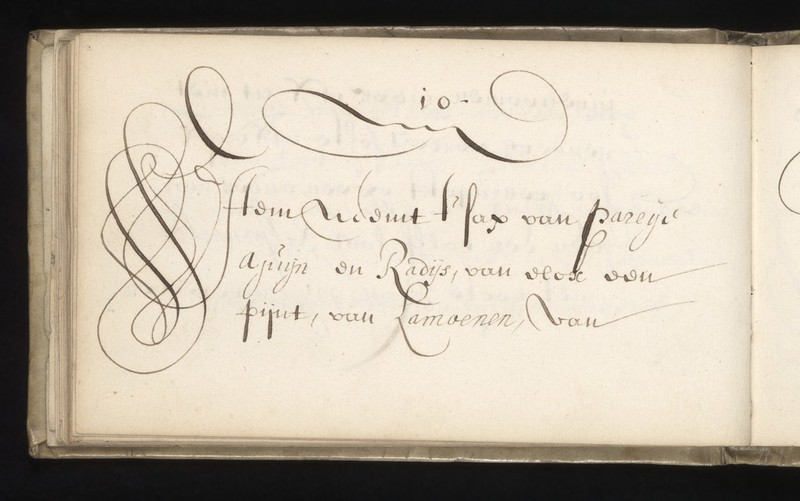 10.
Item Neemt t'sap van pareije
Ajuijn en Radijs, van elcx een
pijnt, van Lamoenen, van